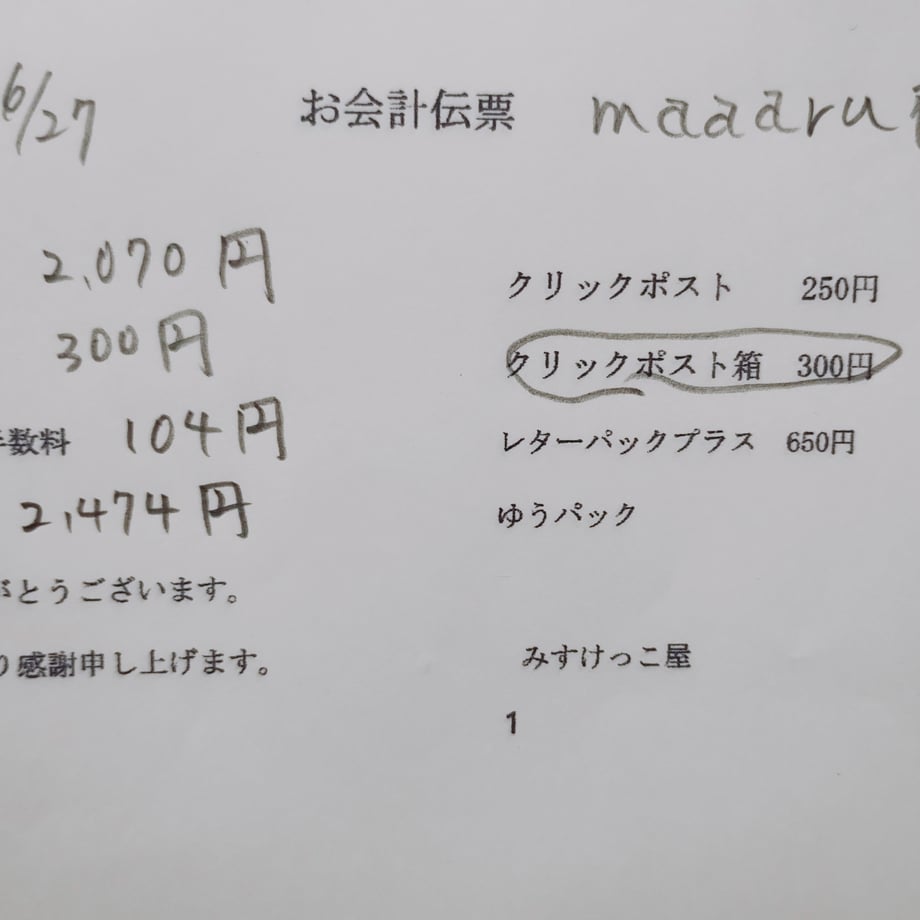 6/27
お会計伝票
maaaru
2,070円
300円
手数料 104円
2,474円
がとうございます。
り感謝申し上げます。
クリックポスト 250円
クリックポスト箱 300円
レターパックプラス 650円
ゆうパック
みすけっこ屋
1